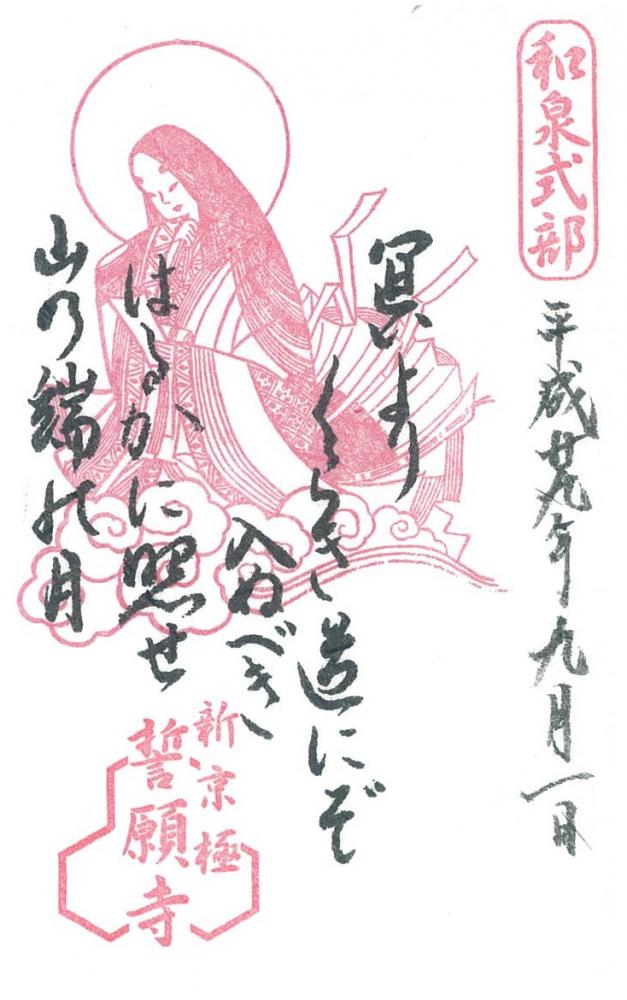 和泉式部
平成廿九年九月一日
冥より
くらき道にぞ
入ぬべき
はるかに照せ
山乃端の月
新京極
誓願寺